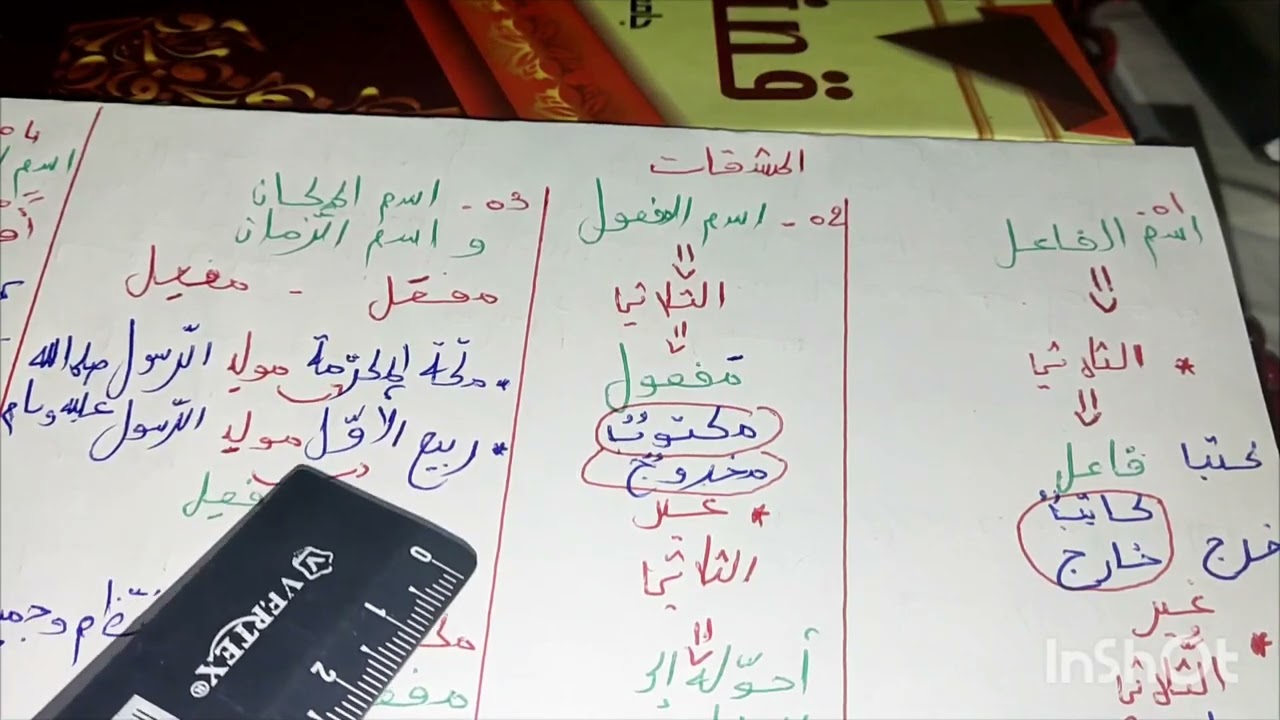 المشتقات
01 -
اسم الفاعل
* الثلاثي
فاعل
كاتبٌ
خرج خارج
غير
* الثّلاثي
02 - اسم المفعول
الثلاثي
مفعول
مكتوبٌ
مخروجٌ
* غير
الثلاثي
أحوّله إلى
03 - اسم المكان
و اسم الزمان
مفعَل - مفعِل
• مكّة المكرّمة مولد الرّسول صلى الله
عليه وسلم
* ربيع الأوّل مولد الرّسول
04
VERTEX®
0
1
2
InShOt